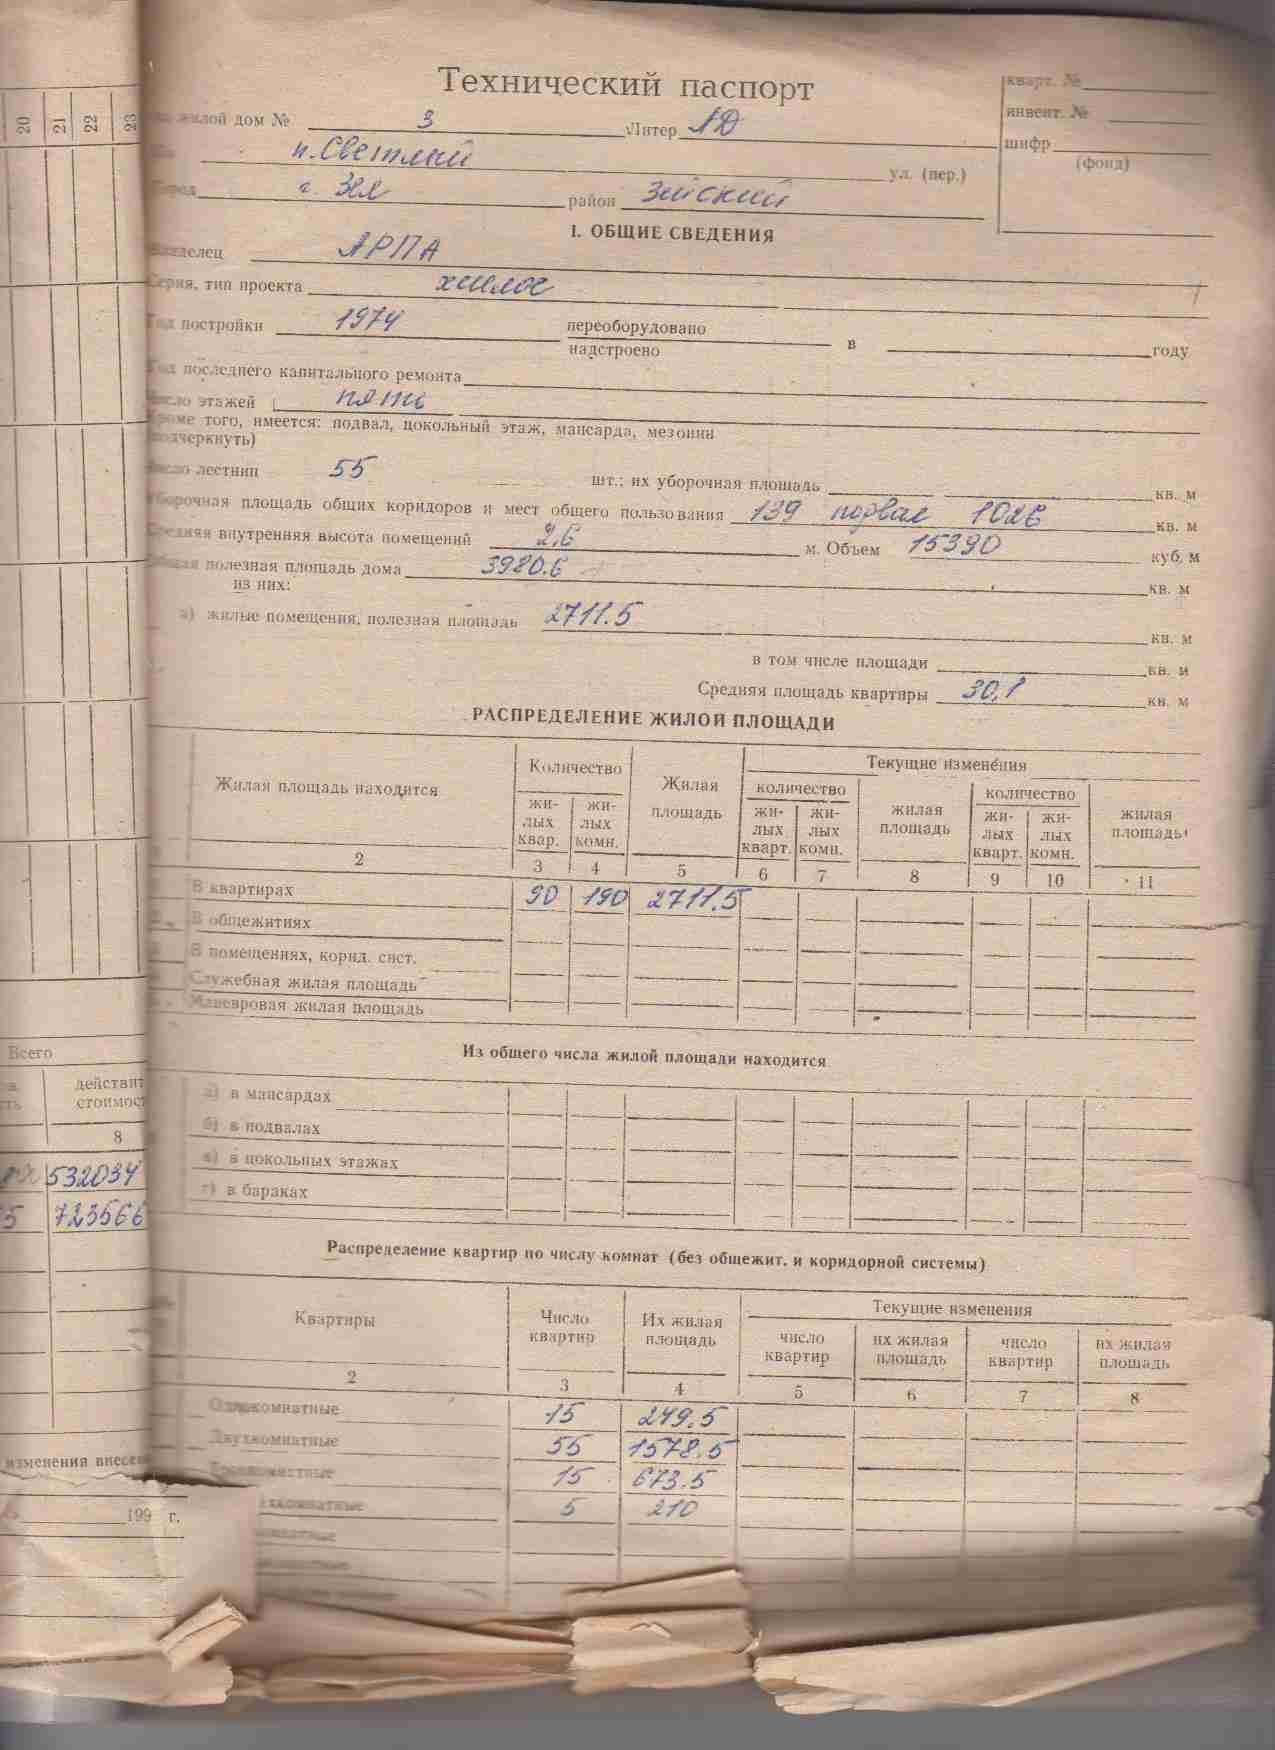 Технический паспорт
кварт. №
инвент. №
шифр
(фонд)
жилой дом № 3 Литер АД
п. Светлый ул. (пер.)
Город г. Зея район Зейский
I. ОБЩИЕ СВЕДЕНИЯ
Владелец АРПА
Серия, тип проекта жилое
Год постройки 1974 переоборудовано
надстроено в году
Год последнего капитального ремонта
Число этажей пять
Кроме того, имеется: подвал, цокольный этаж, мансарда, мезонин
(подчеркнуть)
Число лестниц 55 шт.; их уборочная площадь кв. м
Уборочная площадь общих коридоров и мест общего пользования 139 подвал 1026 кв. м
Средняя внутренняя высота помещений 2,6 м. Объем 15390 куб. м
Общая полезная площадь дома 3980.6 кв. м
из них:
а) жилые помещения, полезная площадь 2711.5 кв. м
в том числе площади кв. м
Средняя площадь квартиры 30,1 кв. м
РАСПРЕДЕЛЕНИЕ ЖИЛОЙ ПЛОЩАДИ
Жилая площадь находится Количество Жилая площадь Текущие изменения
жилых квар. жилых комн. количество жилая площадь количество жилая площадь
жилых кварт. жилых комн. жилых кварт. жилых комн.
2 3 4 5 6 7 8 9 10 11
В квартирах 90 190 2711.5
В общежитиях
В помещениях, корид. сист.
Служебная жилая площадь
Маневровая жилая площадь
Из общего числа жилой площади находится
а) в мансардах
б) в подвалах
в) в цокольных этажах
г) в бараках
Распределение квартир по числу комнат (без общежит. и коридорной системы)
Квартиры Число квартир Их жилая площадь Текущие изменения
число квартир их жилая площадь число квартир их жилая площадь
2 3 4 5 6 7 8
Однокомнатные 15 249.5
Двухкомнатные 55 1578.5
Трехкомнатные 15 673.5
5 210
20 21 22 23
Всего
действит
стоимост
8
532034
723566
изменения внесен
199 г.